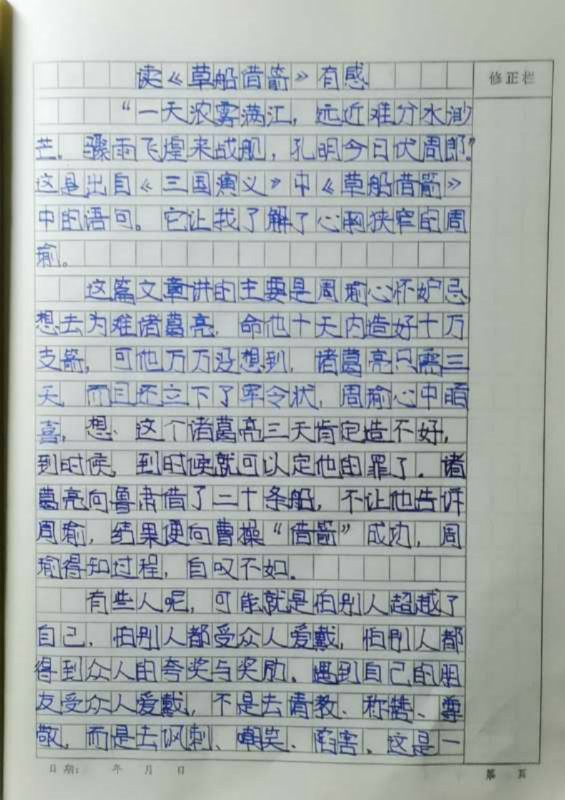 读《草船借箭》有感
修正栏
“一天浓雾满江，远近难分水渺
芒。骤雨飞煌来战舰，孔明今日伏周郎。”
这是出自《三国演义》中《草船借箭》
中的语句。它让我了解了心胸狭窄的周
瑜。
这篇文章讲的主要是周瑜心怀妒忌
想去为难诸葛亮，命他十天内造好十万
支箭，可他万万没想到，诸葛亮只需三
天，而且还立下了军令状，周瑜心中暗
喜，想：这个诸葛亮三天肯定造不好，
到时候，到时候就可以定他的罪了。诸
葛亮向鲁肃借了二十条船，不让他告诉
周瑜，结果便向曹操“借箭”成功，周
瑜得知过程，自叹不如。
有些人呢，可能就是怕别人超越了
自己，怕别人都受众人爱戴，怕别人都
得到众人的夸奖与奖励。遇到自己的朋
友受众人爱戴，不是去请教、称赞、尊
敬，而是去讽刺、嘲笑、陷害。这是一
日期： 年 月 日
第 页